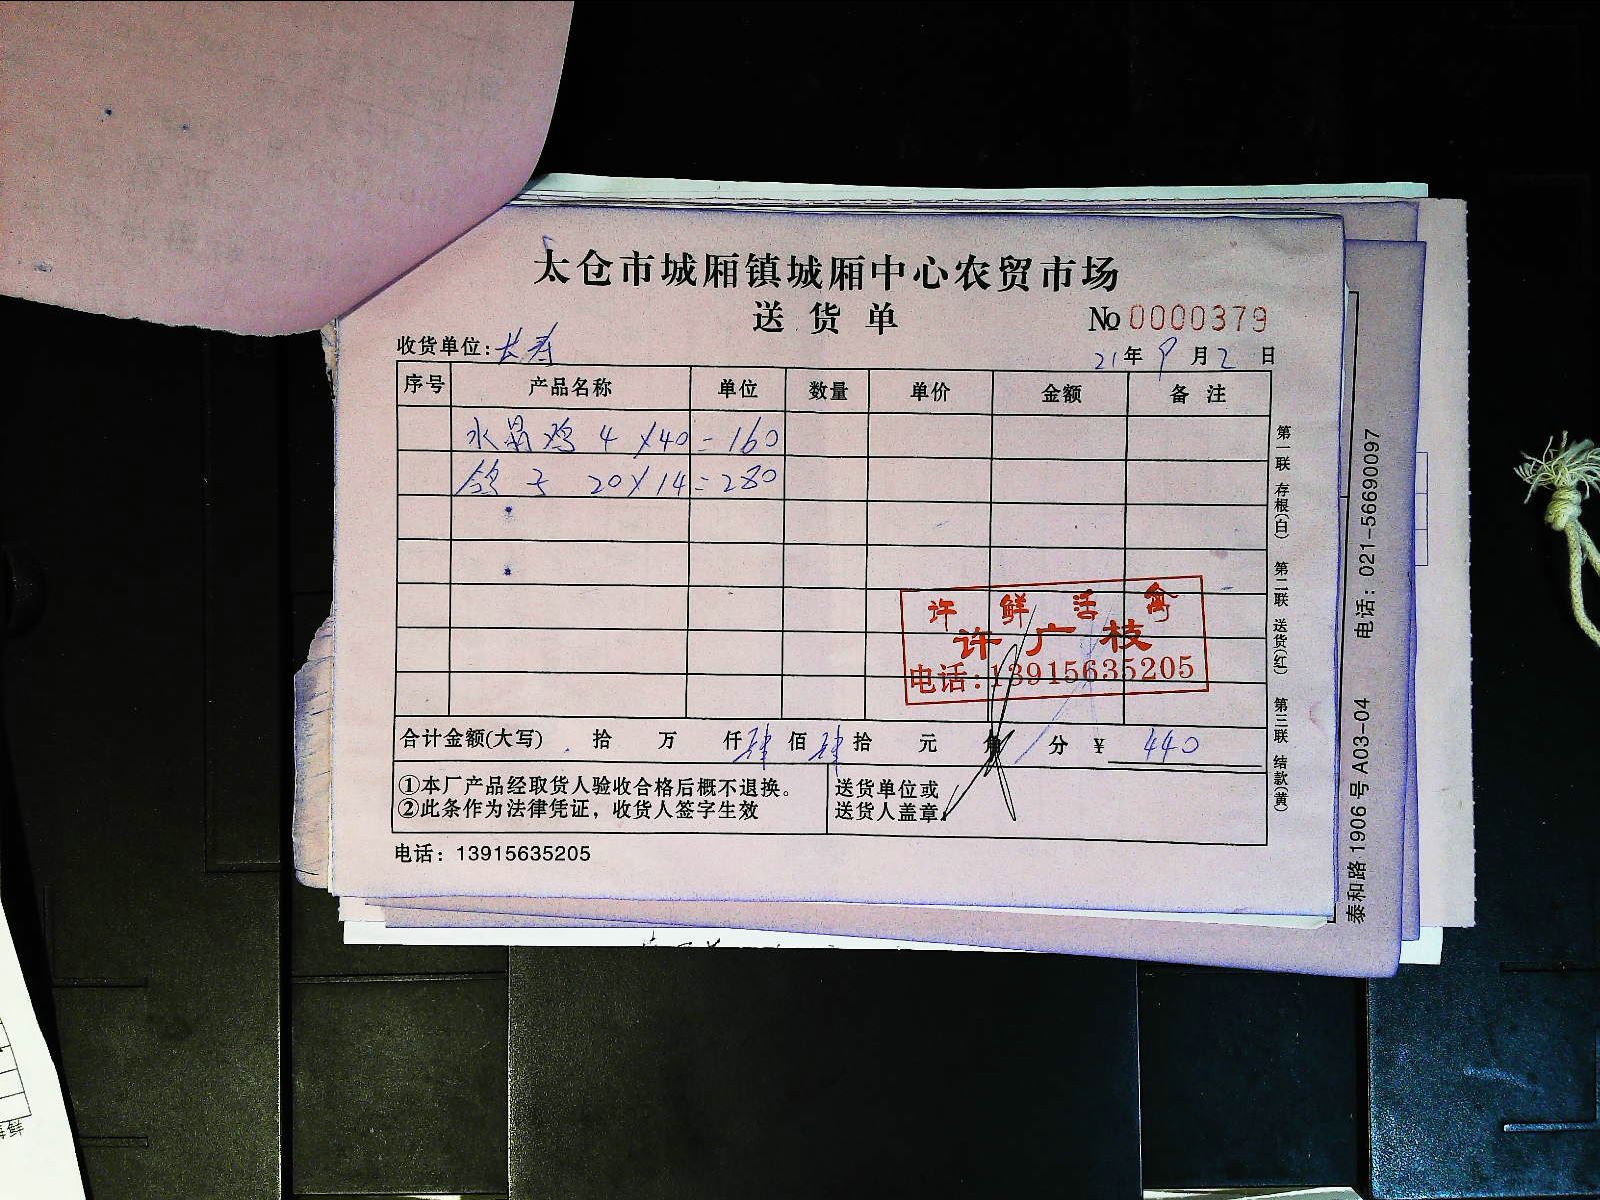 太仓市城厢镇城厢中心农贸市场
送货单
№ 0000379
收货单位: 长寿
21年 9月 2日
序号 产品名称 单位 数量 单价 金额 备注
水晶鸡 4×40=160
鸽子 20×14=280
许鲜活禽
许广枝
电话:13915635205
合计金额(大写) 拾 万 仟 肆 佰 肆 拾 元 角 分 ¥ 440
①本厂产品经取货人验收合格后概不退换。
②此条作为法律凭证，收货人签字生效
送货单位或
送货人盖章
电话：13915635205
第一联 存根(白) 第二联 送货(红) 第三联 结款(黄)
泰和路1906号A03-04 电话：021-56690097